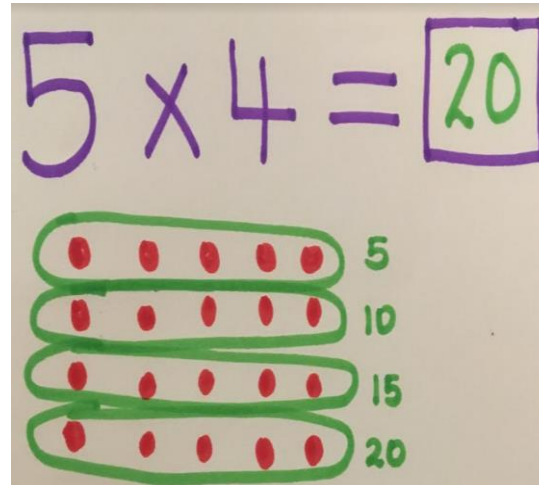 5 x 4 = 20
5
10
15
20